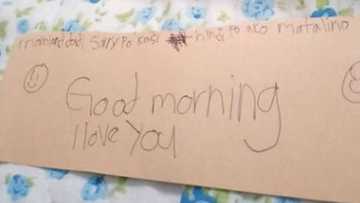 mom and dad Sorry po kasi hindi po ako matalino
Good morning
I love you